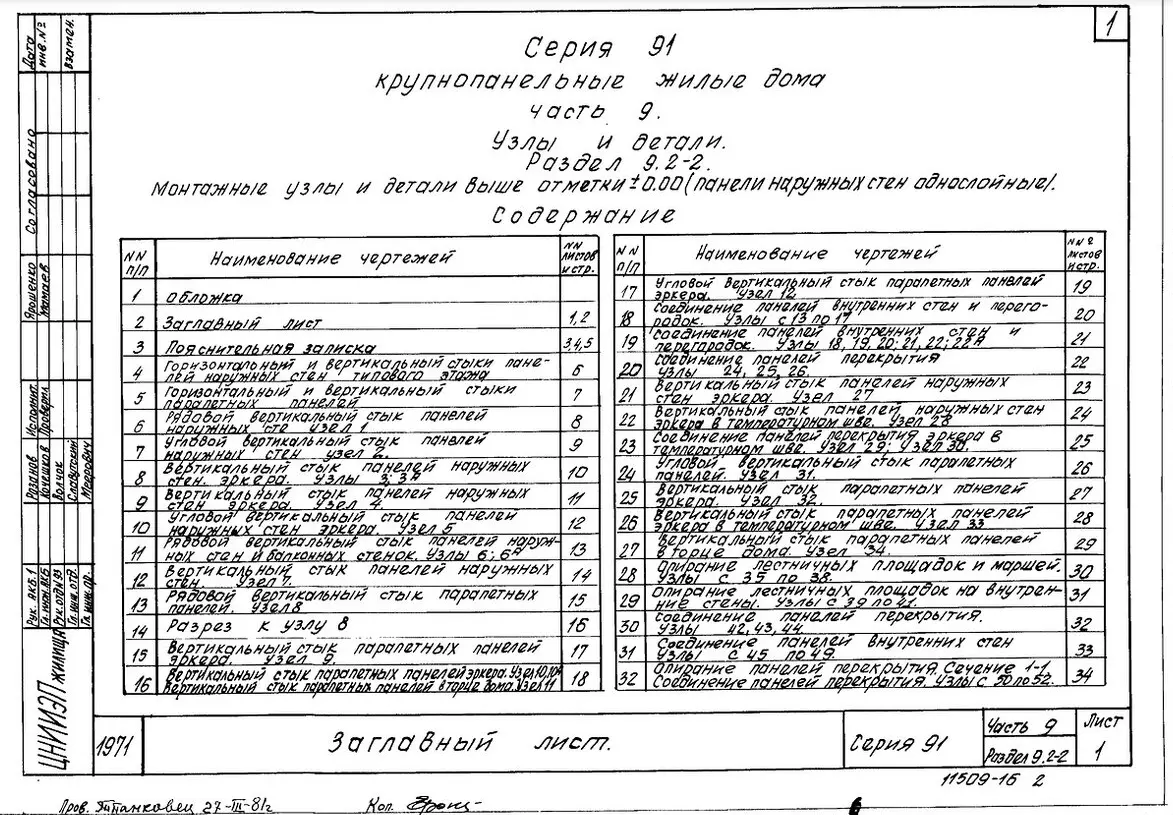 1
Серия 91
крупнопанельные жилые дома
часть 9.
Узлы и детали.
Раздел 9.2-2.
Монтажные узлы и детали выше отметки ±0.00 (панели наружных стен однослойные).
Содержание
NN п/п
Наименование чертежей
NN листов и стр.
1 Обложка
2 Заглавный лист 1,2
3 Пояснительная записка 3,4,5
4 Горизонтальный и вертикальный стыки пане-
лей наружных стен типового этажа 6
5 Горизонтальный и вертикальный стыки
парапетных панелей 7
6 Рядовой вертикальный стык панелей
наружных сте узел 1 8
7 Угловой вертикальный стык панелей
наружных стен узел 2. 9
8 Вертикальный стык панелей наружных
стен. эркера. Узлы 3; 3А 10
9 Вертикальный стык панелей наружных
стен эркера. Узел 4. 11
10 Угловой вертикальный стык панелей
наружных стен эркера. Узел 5 12
11 Рядовой вертикальный стык панелей наруж-
ных стен и балконных стенок. Узлы 6; 6А 13
12 Вертикальный стык панелей наружных
стен. Узел 7. 14
13 Рядовой вертикальный стык парапетных
панелей. Узел 8 15
14 Разрез к узлу 8 16
15 Вертикальный стык парапетных панелей
эркера. Узел 9. 17
16 Вертикальный стык парапетных панелей эркера. Узел 10, 10А
Вертикальный стык парапетных панелей в торце дома. Узел 11 18
NN п/п
Наименование чертежей
NN листов и стр.
17 Угловой вертикальный стык парапетных панелей
эркера. Узел 12 19
18 Соединение панелей внутренних стен и перего-
родок. Узлы с 13 по 17 20
19 Соединение панелей внутренних стен и
перегородок. Узлы 18, 19, 20; 21, 22; 22А 21
20 Соединение панелей перекрытия
Узлы 24, 25, 26. 22
21 Вертикальный стык панелей наружных
стен эркера. Узел 27 23
22 Вертикальный стык панелей наружных стен
эркера в температурном шве. Узел 28 24
23 Соединение панелей перекрытия эркера в
температурном шве. Узел 29; Узел 30. 25
24 Угловой вертикальный стык парапетных
панелей. Узел 31. 26
25 Вертикальный стык парапетных панелей
эркера. Узел 32. 27
26 Вертикальный стык парапетных панелей
эркера в температурном шве. Узел 33 28
27 Вертикальный стык парапетных панелей
в торце дома. Узел 34. 29
28 Опирание лестничных площадок и маршей.
Узлы с 35 по 38. 30
29 Опирание лестничных площадок на внутрен-
ние стены. Узлы с 39 по 41. 31
30 Соединение панелей перекрытия.
Узлы 42, 43, 44. 32
31 Соединение панелей внутренних стен
Узлы с 45 по 49. 33
32 Опирание панелей перекрытия Сечение 1-1.
Соединение панелей перекрытия. Узлы с 50 по 52. 34
Дата
инв. №
Взамен.
Согласовано
Ярошенко
Мамаев
Исполнит.
Проверил
Розанов
Кочешков
Волчок
Славутский
Меерович
Рук. АКБ.1
Гл. инж. АКБ
Рук. отд. 93
Гл. инж. отд.
Гл. инж. пр.
ЦНИИЭП жилища
1971
Заглавный лист.
Серия 91
Часть 9
Раздел 9.2-2
Лист
1
11509-16 2
Пров. 27-III-81г
Коп.
6